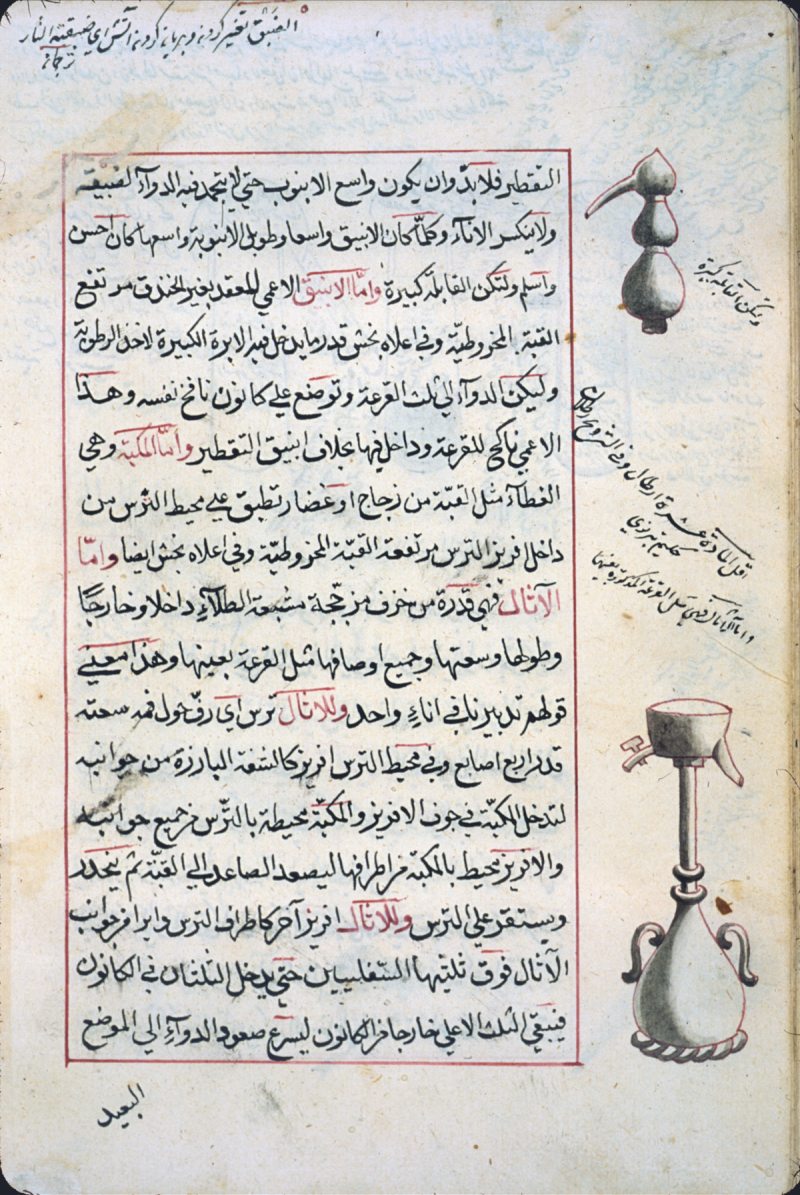 التقطير فلابد وان يكون واسع الانبوب حتى لا يتجمد فيه الدواء لضيقه
ولا ينكسر الاناء وكلما كان الانبيق واسعا وطويل الانبوبة واسعها كان احسن
واسلم ولتكن القابلة كبيرة واما الانبيق الاعمي للمعقد بغير الخندق مرتفع
القبة المخروطية وفي اعلاه نخش قدر ما يدخل فيه الابرة الكبيرة لاخل الرطوبة
وليكن الدواء الي ثلث القرعة وتوضع علي كانون نافخ نفسه وهذا
الاعمي ناكح للقرعة وداخل فيها بخلاف انبيق التقطير واما المكبة وهي
الغطاء مثل القبة من زجاج او غضار تطبق علي محيط الترس من
داخل افريز الترس مرتفعة القبة المخروطية وفي اعلاه نخش ايضا واما
الآثال فهي قدرة من خزف مزججة مشبعة الطلاء داخلا وخارجا
وطولها وسعتها وجميع اوصافها مثل القرعة بعينها وهذا معني
قولهم تدبيرنا في اناء واحد وللاثال ترس اي رف حول فمه سعته
قدر اربع اصابع وفي محيط الترس افريز كالشفة البارزة من جوانبه
لتدخل المكبة في جوف الافريز والمكبة محيطة بالترس من جميع جوانبه
والافريز محيط بالمكبة من اطرافها ليصعد الصاعد الي القبة ثم ينحدر
ويستقر علي الترس وللاثال افريز آخر كاطراف الترس دايرا من جوانب
الآثال فوق ثلثيها السفليين حتي يدخل الثلثان في الكانون
فيبقي الثلث الاعلي خارجا من الكانون ليسرع صعود الدواء الي الموضع
البعيد
ولتكن القابلة كبيرة